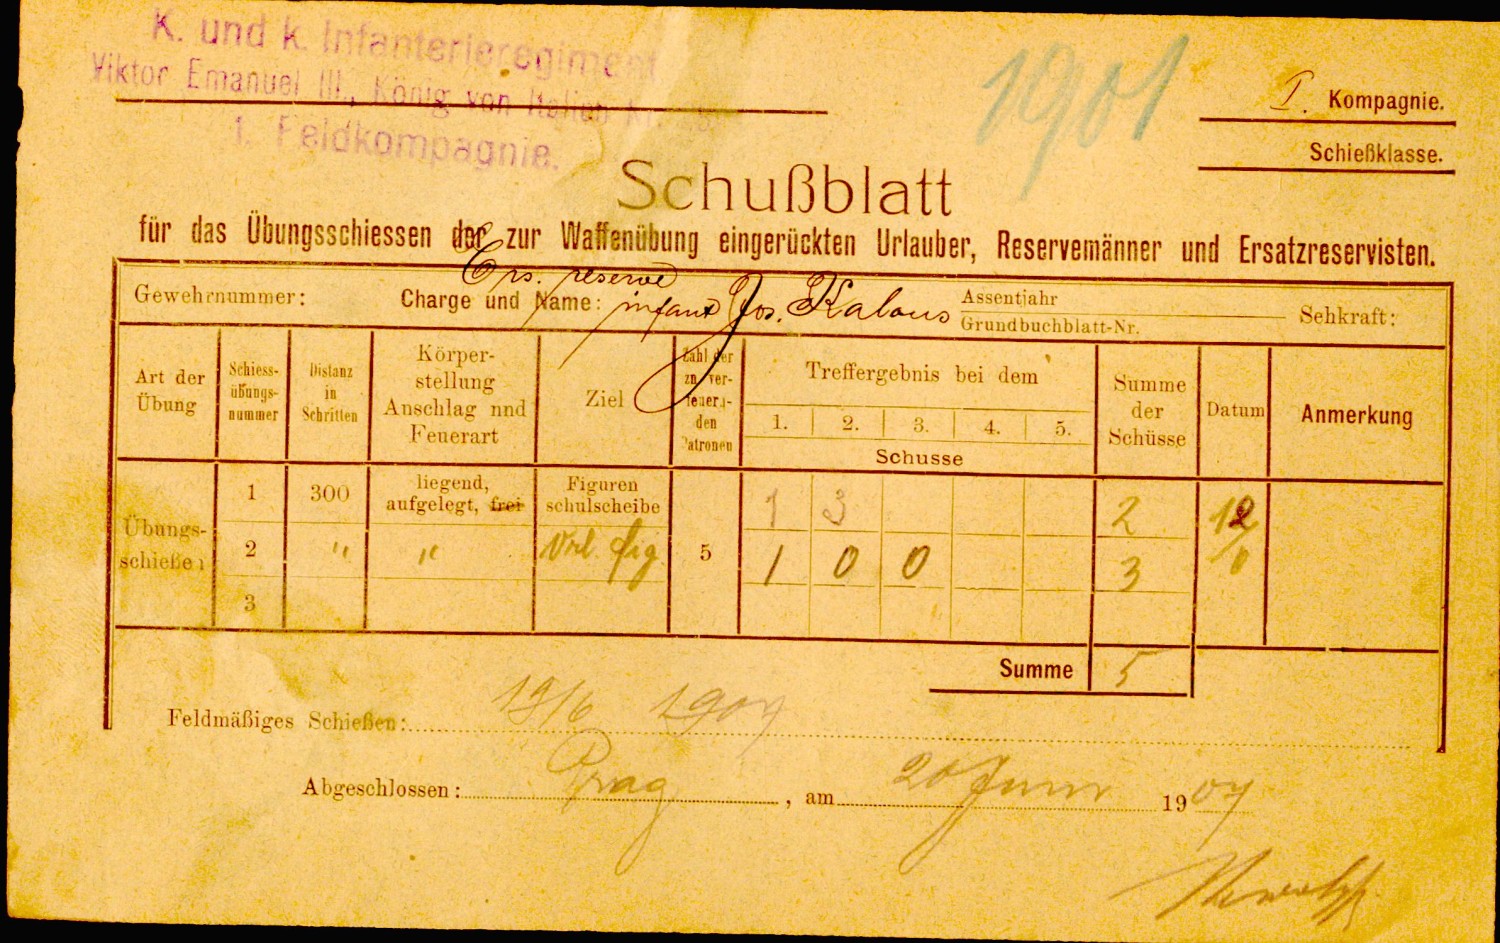 K. und k. Infanterieregiment
Viktor Emanuel III., König von Italien Nr. 28
1. Feldkompagnie.
1901
I. Kompagnie.
Schießklasse.
Schußblatt
für das Übungsschiessen der zur Waffenübung eingerückten Urlauber, Reservemänner und Ersatzreservisten.
Gewehrnummer: Charge und Name: Ers. reserve infant Jos. Kalous Assentjahr Grundbuchblatt-Nr. Sehkraft:
Art der Übung
Schiess-übungs-nummer
Distanz in Schritten
Körper-stellung Anschlag und Feuerart
Ziel
Zahl der zu ver-feuern-den Patronen
Treffergebnis bei dem
1. 2. 3. 4. 5.
Schusse
Summe der Schüsse
Datum
Anmerkung
Übungs-schießen
1 300 liegend, aufgelegt, frei Figuren schulscheibe 1 3 2 12
2 " " fig 5 1 0 0 3
3
Summe 5
Feldmäßiges Schießen: 19/6 1907
Abgeschlossen: Prag, am 20 Juni 1907